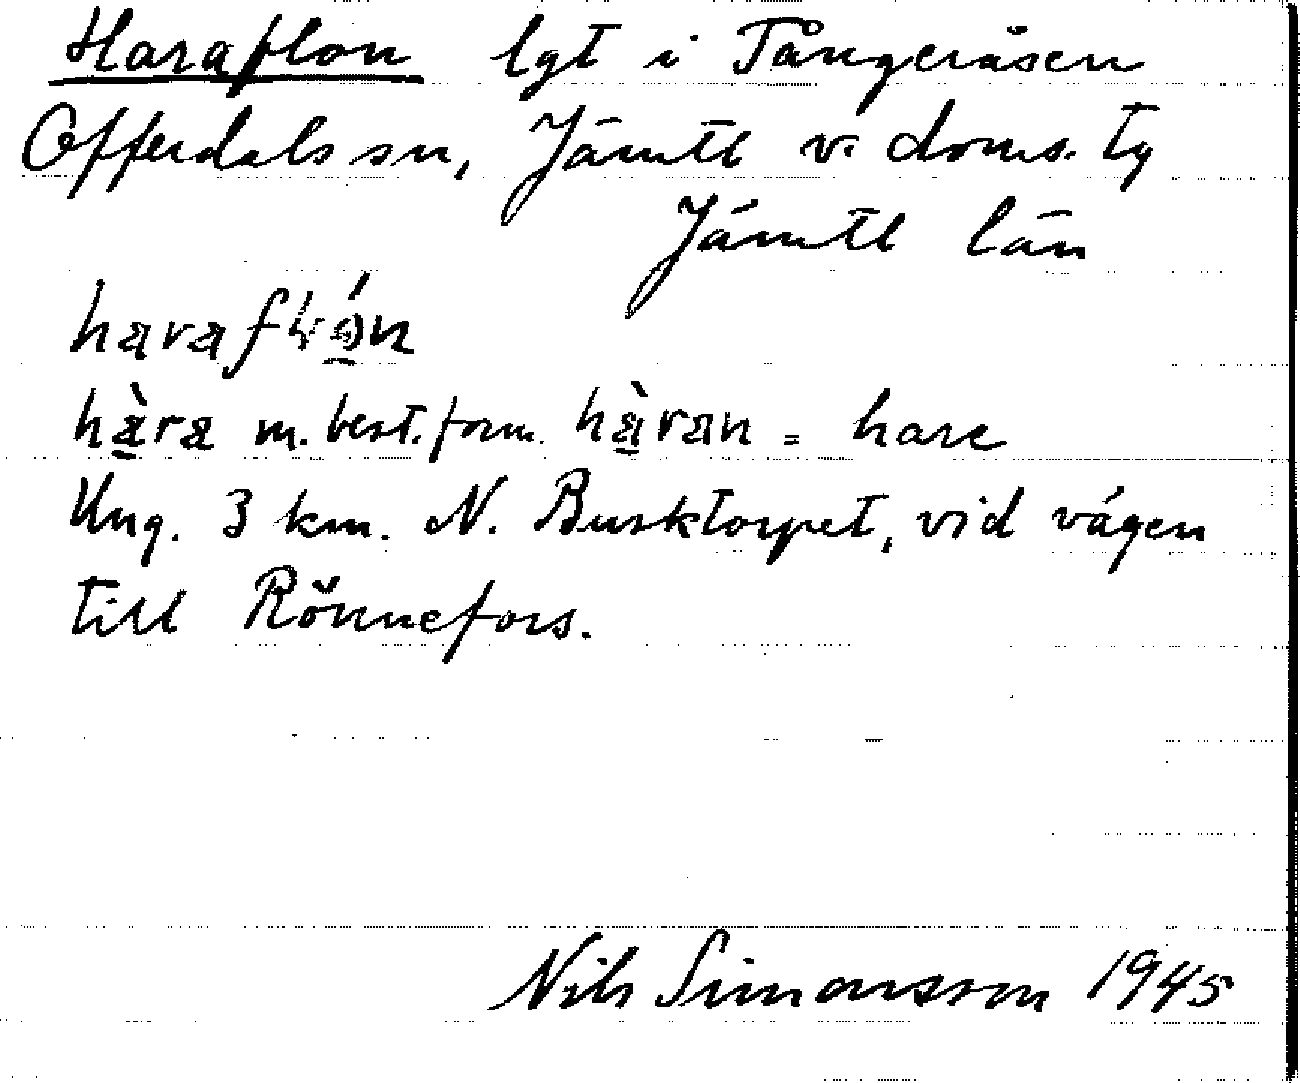 Haraflon lgt i Tångeråsen
Offerdals sn, Jämtl v. doms. tg
Jämtl län
harafɫó̱n
hà̱ra m. best. form. hà̱ran = hare
Ung. 3 km. N. Busktorpet, vid vägen
till Rönnefors.
Nils Simonsson 1945